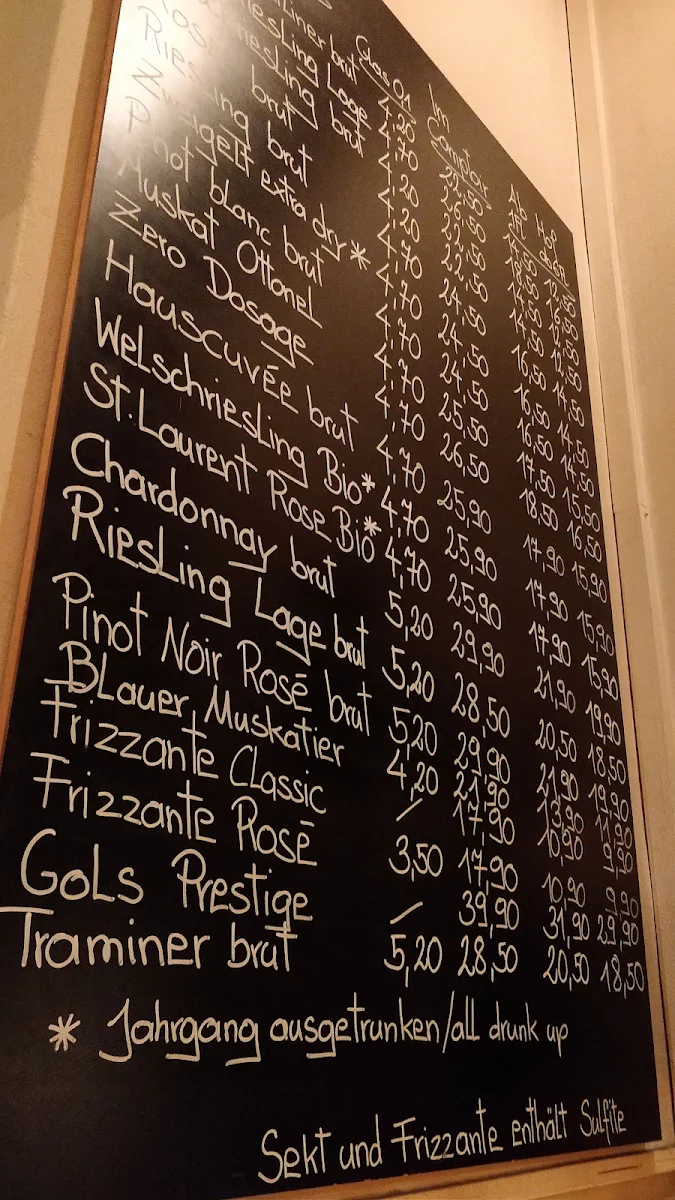 Glas 0,1 Im Comptoir Ab Hof
brut 4,20 22,50
Riesling Lage 4,70 26,50
Riesling brut 4,20 22,50
brut 4,20 22,50
Riesling brut 4,70 24,50 16,50 14,50
Zweigelt extra dry * 4,70 24,50 16,50 14,50
Pinot blanc brut 4,70 24,50 16,50 14,50
Muskat Ottonel 4,70 25,50 17,50 15,50
Zero Dosage 4,70 26,50 18,50 16,50
Hauscuvée brut 4,70 25,90 17,90 15,90
Welschriesling Bio* 4,70 25,90 17,90 15,90
St. Laurent Rose Bio* 4,70 25,90 17,90 15,90
Chardonnay brut 5,20 29,90 21,90 19,90
Riesling Lage brut 5,20 28,50 20,50 18,50
Pinot Noir Rosé brut 5,20 29,90 21,90 19,90
Blauer Muskatier 4,20 21,90 13,90 11,90
Frizzante Classic / 17,90 10,90 9,90
Frizzante Rosé 3,50 17,90 10,90 9,90
Gols Prestige / 39,90 31,90 29,90
Traminer brut 5,20 28,50 20,50 18,50
* Jahrgang ausgetrunken/all drunk up
Sekt und Frizzante enthält Sulfite